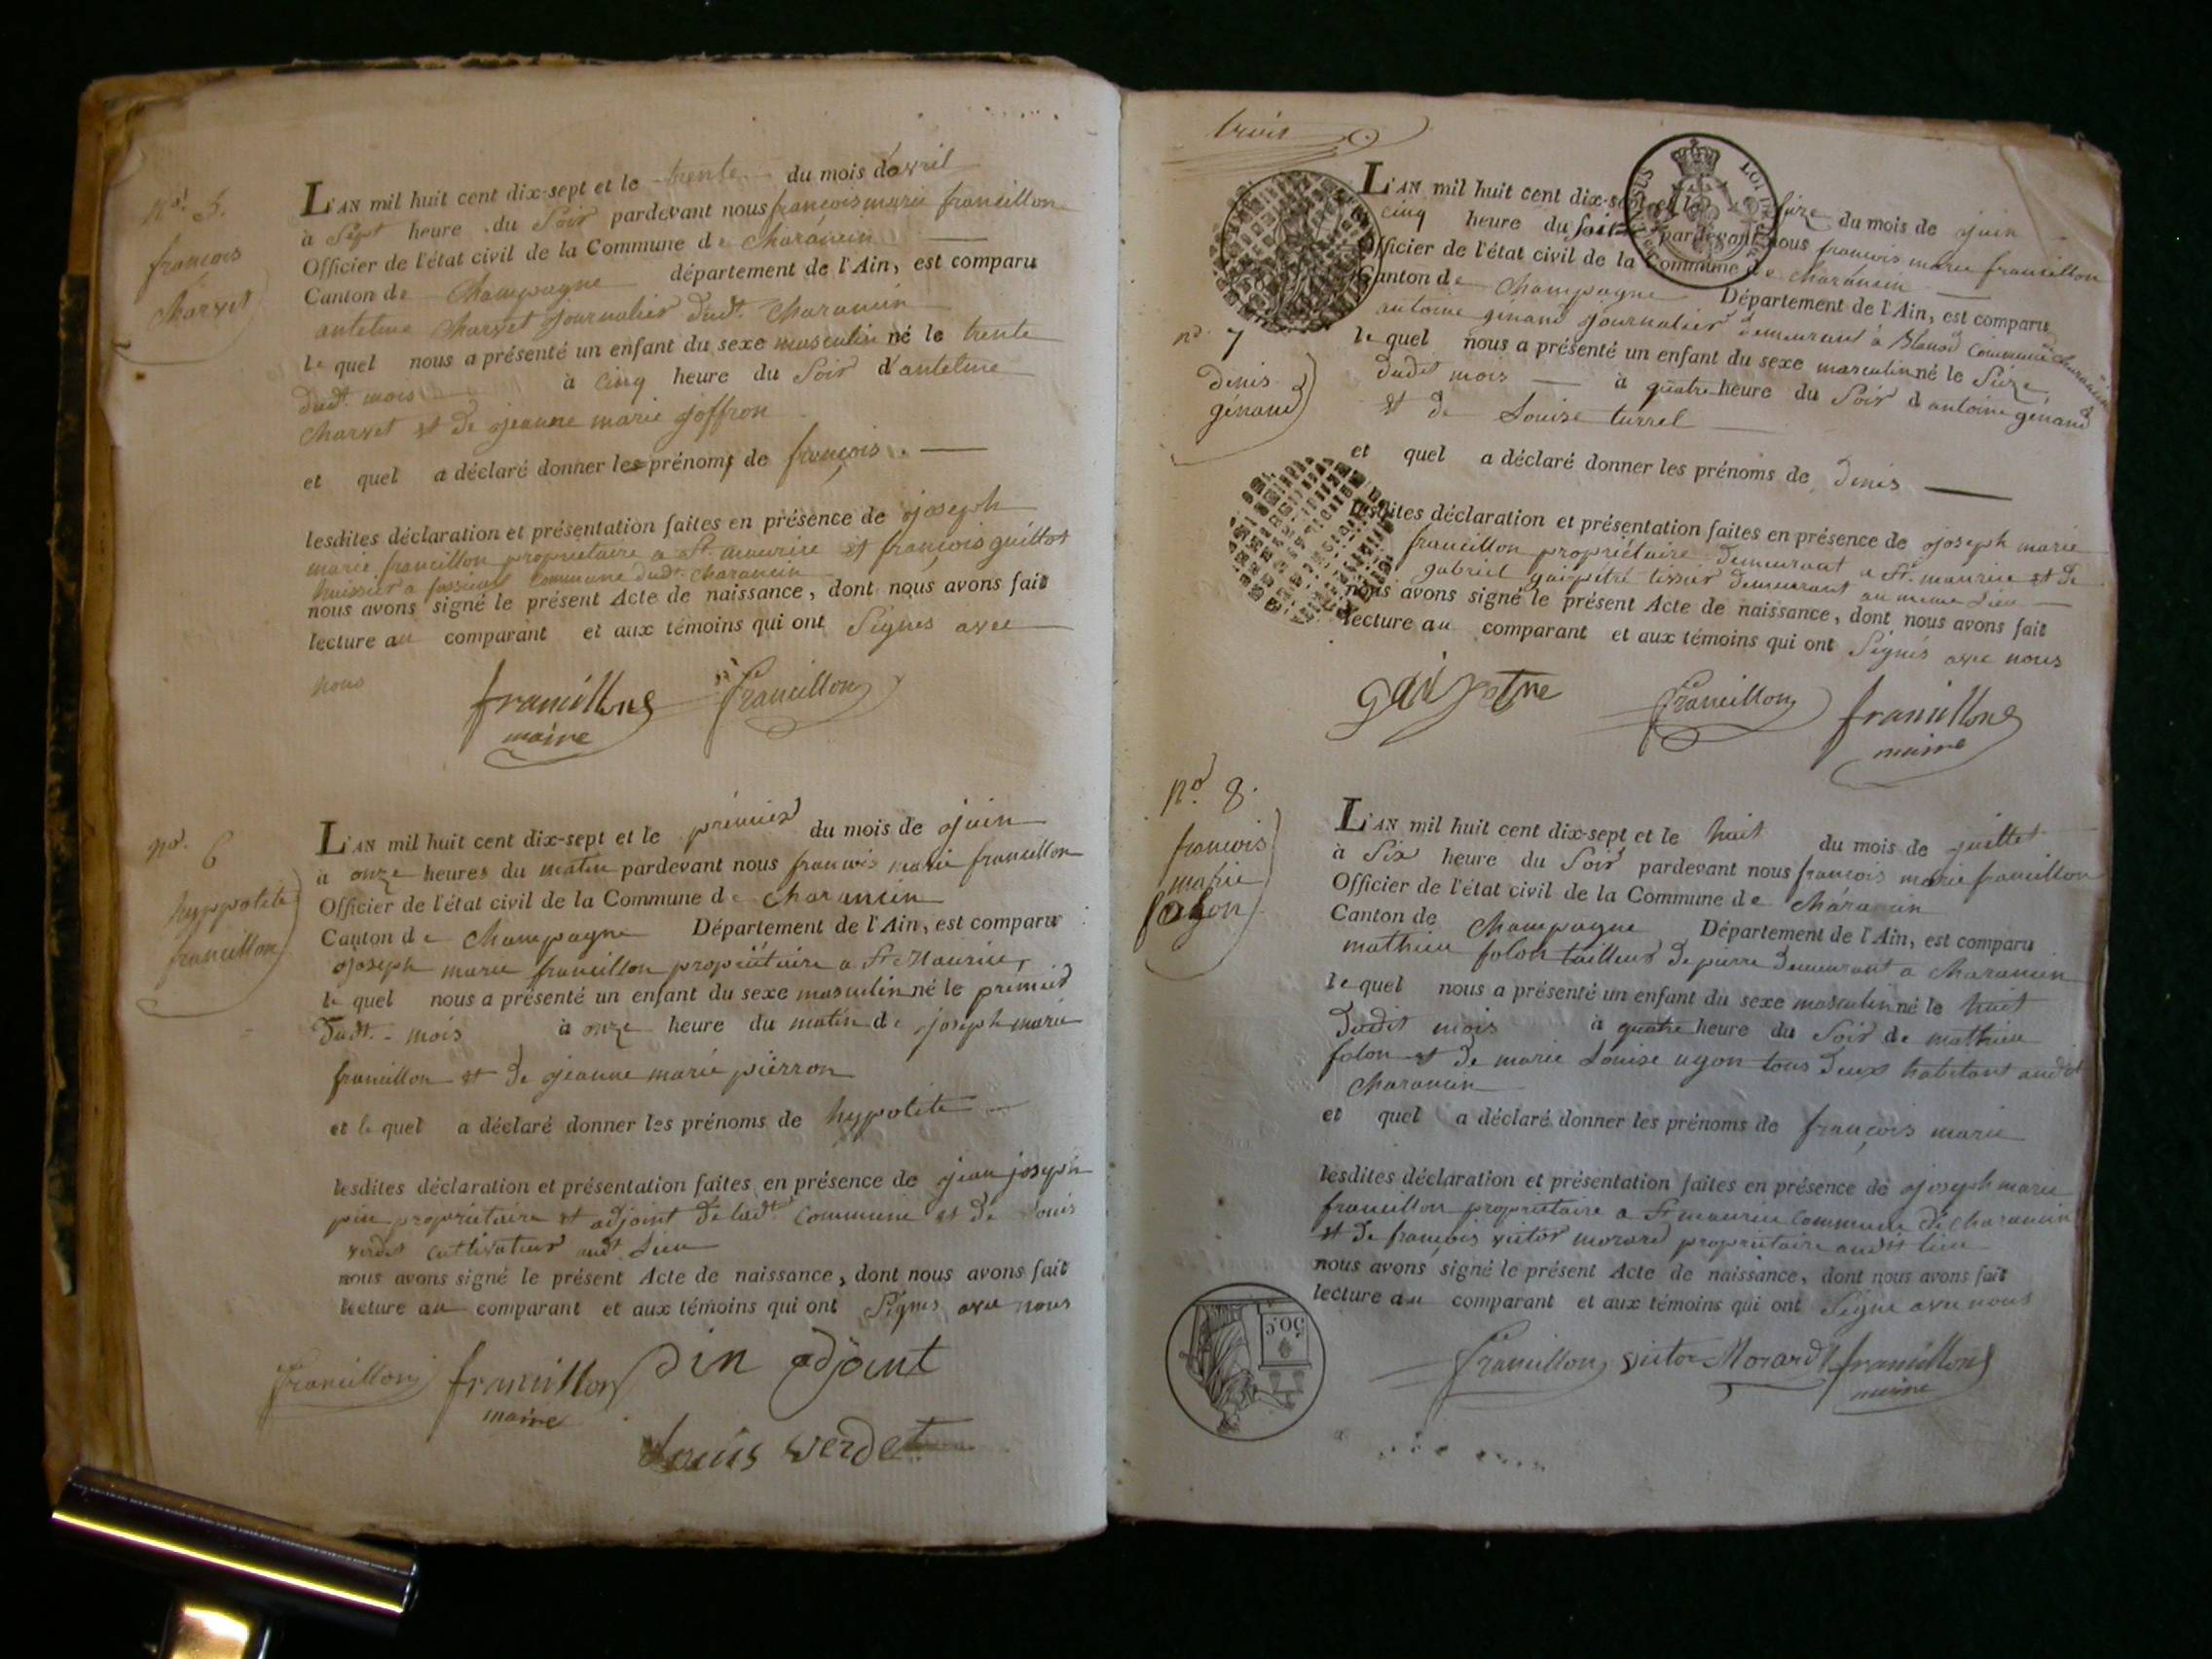 no. 5.
françois
Charvet
L'AN mil huit cent dix-sept et le trente du mois davril
à Sept heure du Soir pardevant nous françois marie francillon
Officier de l'état civil de la Commune de Charancin
Canton de Champagne département de l'Ain, est comparu
antelme Charvet journalier dudt. Charancin
le quel nous a présenté un enfant du sexe masculin né le trente
dudt. mois à cinq heure du Soir d'antelme
Charvet et de jeanne marie joffron
et quel a déclaré donner les prénoms de françois.
lesdites déclaration et présentation faites en présence de joseph
marie francillon propriétaire a St. maurice et françois guillot
huissier a fossieux commune dudt. Charancin
nous avons signé le présent Acte de naissance, dont nous avons fait
lecture au comparant et aux témoins qui ont Signés avec
nous
francillon francillon
maire
no. 6
hyppolite
francillon
L'AN mil huit cent dix-sept et le prémier du mois de juin
à onze heures du matin pardevant nous francois marie francillon
Officier de l'état civil de la Commune de Charancin
Canton de Champagne Département de l'Ain, est comparu
joseph marie francillon propriétaire a St. Maurice,
le quel nous a présenté un enfant du sexe masculin né le premier
dudt. mois à onze heure du matin de joseph marie
francillon et de jeanne marie pierron
et le quel a déclaré donner les prénoms de hypolite
lesdites déclaration et présentation faites en présence de jean joseph
pin propriétaire et adjoint de ladt. Commune et de Louis
verdet cultivateur audt. Lieu
nous avons signé le présent Acte de naissance, dont nous avons fait
lecture au comparant et aux témoins qui ont Signés avec nous
francillon francillon pin adjoint
maire
Louis verdet
trois
no. 7
denis
génand
L'AN mil huit cent dix-sept et le Sieze du mois de juin
cinq heure du soir pardevant nous francois marie francillon
Officier de l'état civil de la Commune de Charancin
Canton de Champagne Département de l'Ain, est comparu
antoine génand journalier demeurant à Blanod Commune de charancin
le quel nous a présenté un enfant du sexe masculin né le Sieze
dudit mois à quatre heure du Soir d antoine génand
et de Louise turrel
et quel a déclaré donner les prénoms de denis
lesdites déclaration et présentation faites en présence de joseph marie
francillon propriétaire demeurant a St. maurice et de
gabriel guirpétré tissier demeurant au meme Lieu
nous avons signé le présent Acte de naissance, dont nous avons fait
lecture au comparant et aux témoins qui ont Signés avec nous
francillon francillon
maire
no. 8.
francois
marie
folon
L'AN mil huit cent dix-sept et le huit du mois de juillet
à Six heure du Soir pardevant nous francois marie francillon
Officier de l'état civil de la Commune de Charancin
Canton de Champagne Département de l'Ain, est comparu
mathieu folon tailleur de pierre demeurant a Charancin
le quel nous a présenté un enfant du sexe masculin né le huit
dudit mois à quatre heure du Soir de mathieu
folon et de marie Louise ugon tous deux habitant audit
Charancin
et quel a déclaré donner les prénoms de françois marie
lesdites déclaration et présentation faites en présence de joseph marie
francillon propriétaire a St maurice commune de charancin
et de françois victor morard propriétaire audit lieu
nous avons signé le présent Acte de naissance, dont nous avons fait
lecture au comparant et aux témoins qui ont Signé avec nous
50 c
francillon victor Morard francillon
maire